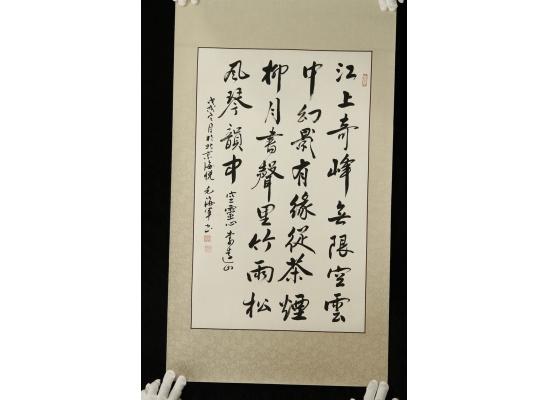 江上奇峰無限空雲
中幻影有緣從茶煙
柳月書聲里竹雨松
風琴韻中 空靈心
戊戌 月於北京海悦 毛海軍书